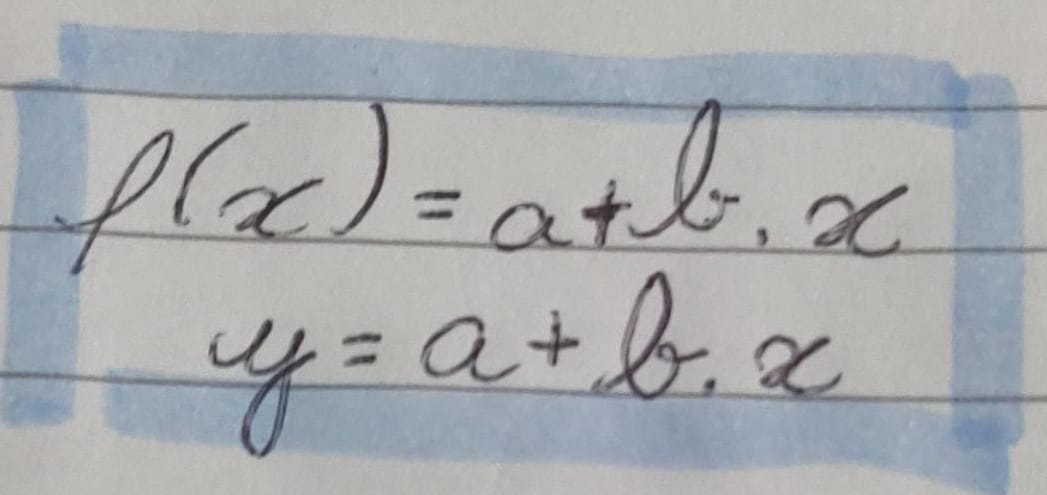 f(x) = a + b . x
y = a + b . x